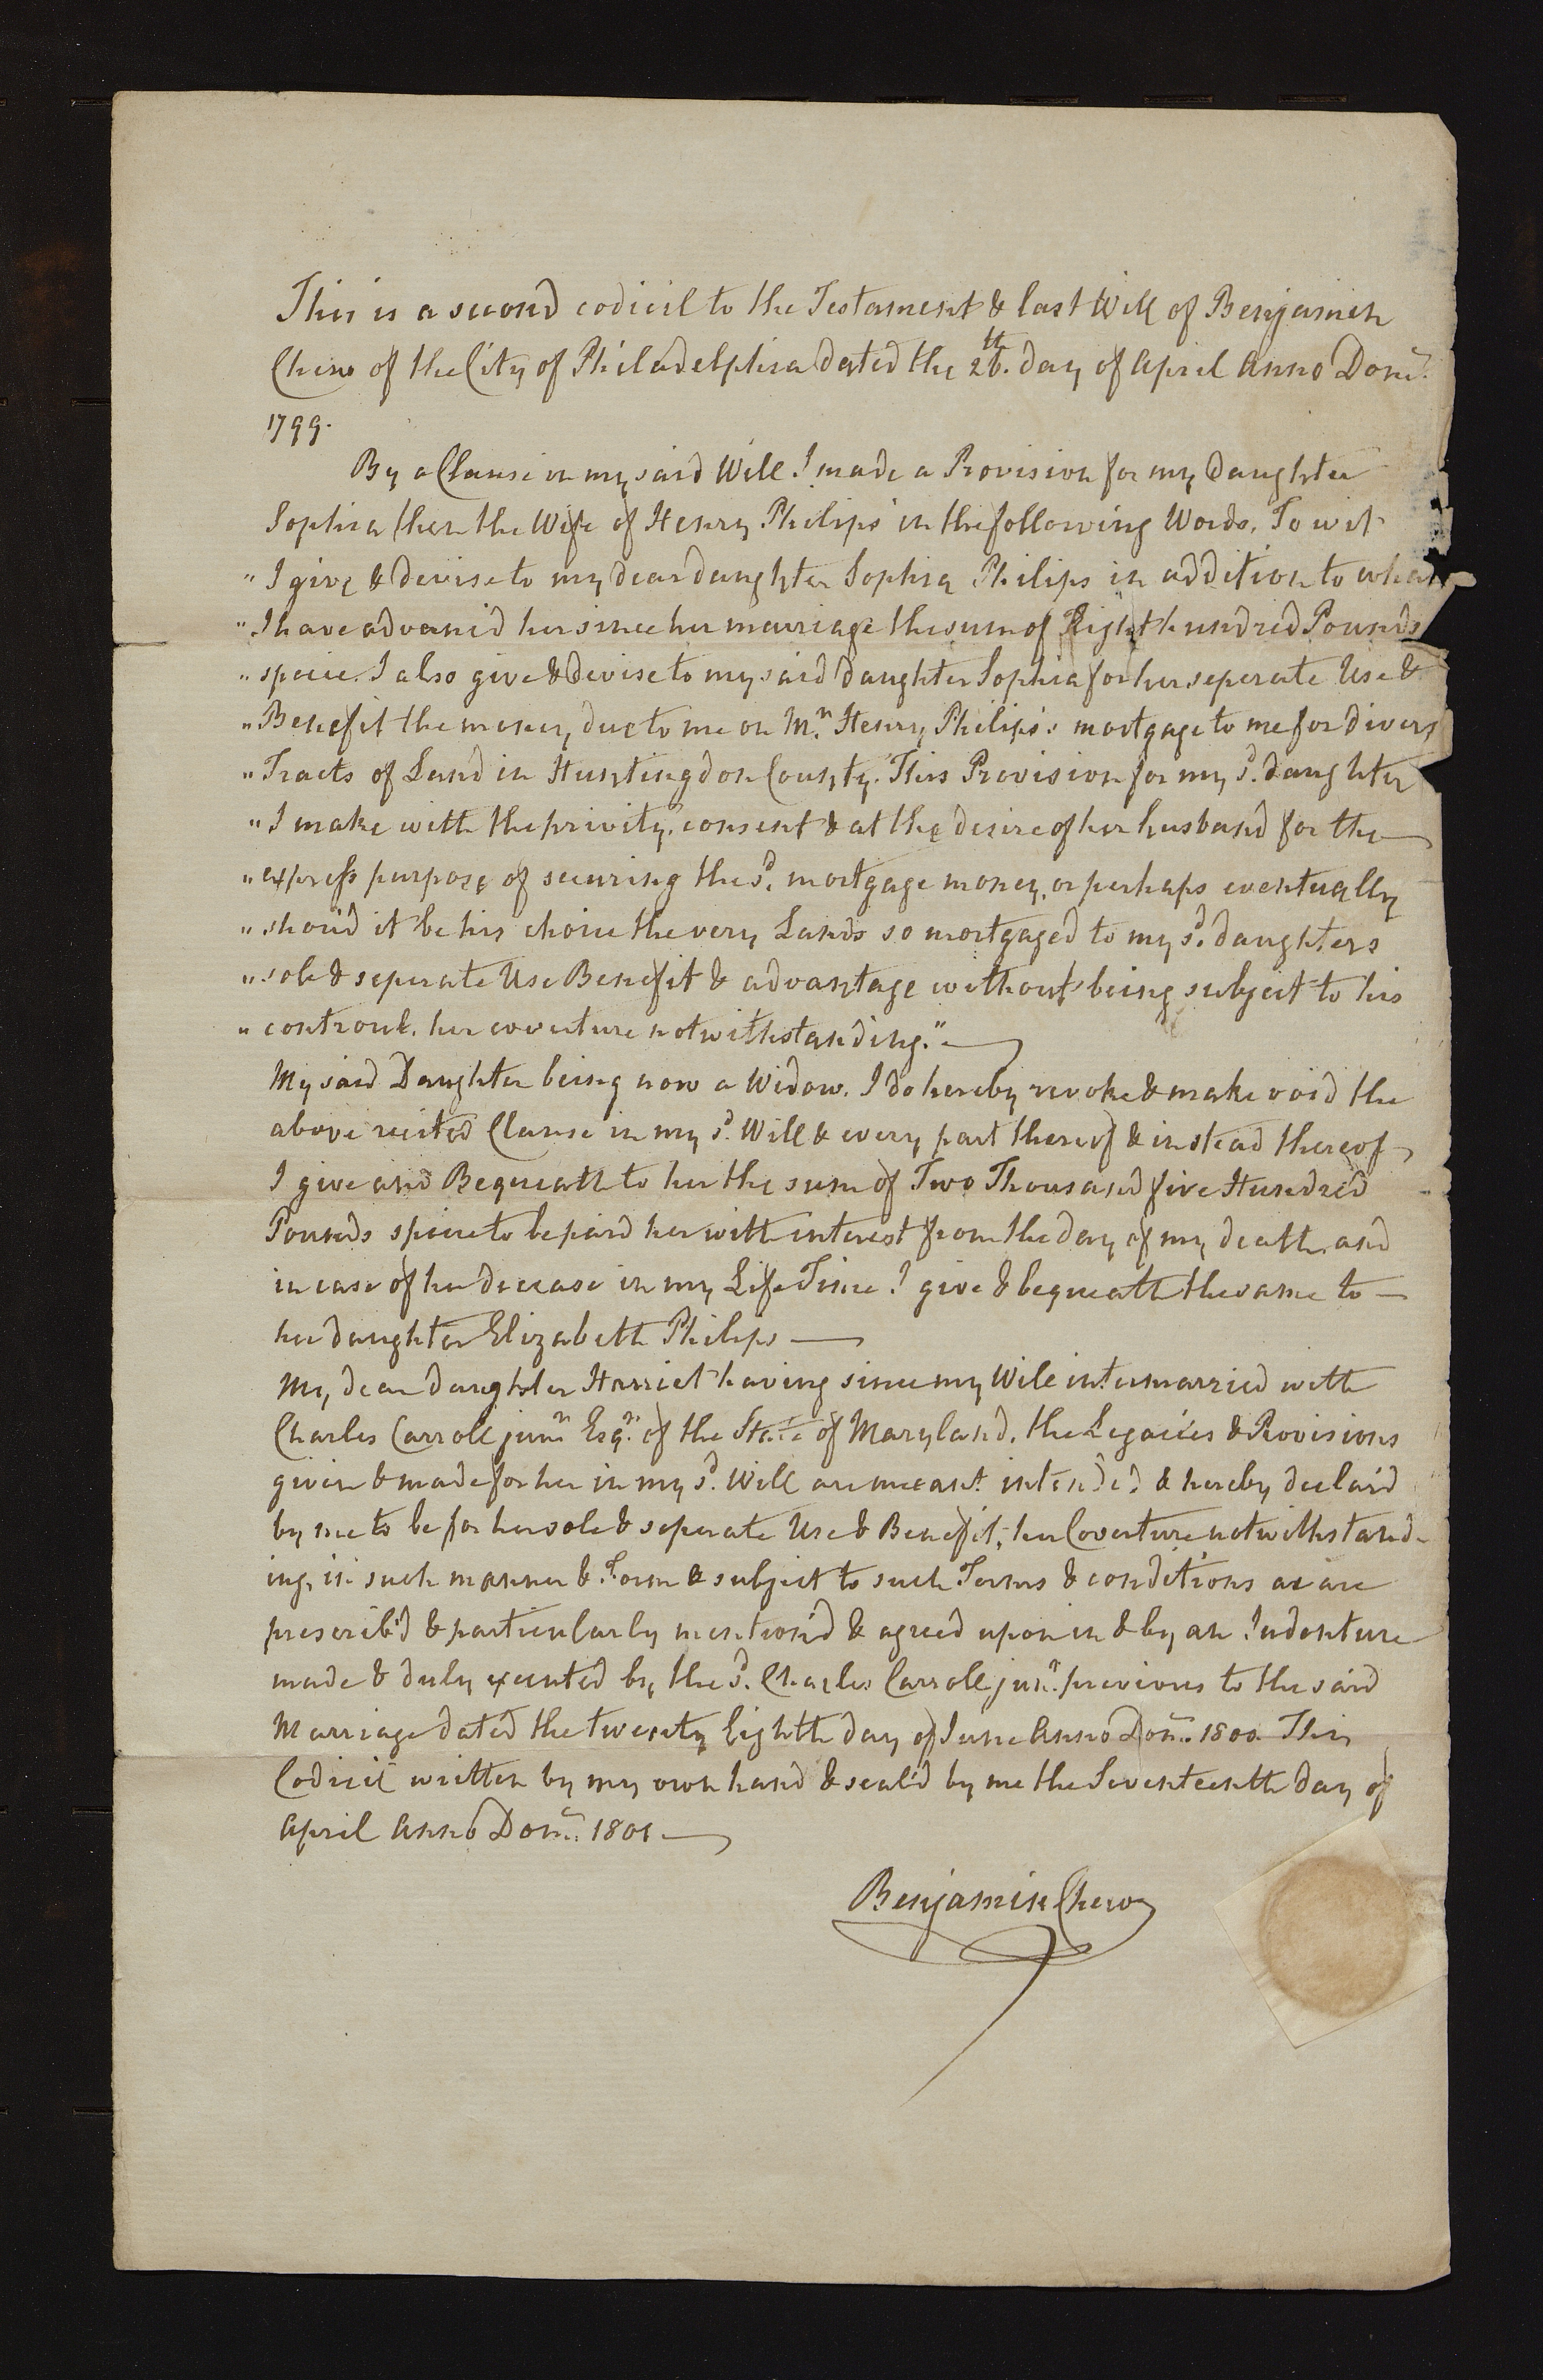 This is a second codicil to the Testament & last Will of Benjamin
Chew of the City of Philadelphia dated the 26th. day of April Anno Dom:
1799.
By a Clause in my said Will I made a Provision for my Daughter
Sophia then the Wife of Henry Philips in the following Words, To wit
" I give & devise to my dear daughter Sophia Philips in addition to what
" I have advanc'd her since her marriage the sum of Eight hundred Pounds
" specie. I also give & devise to my said daughter Sophia for her seperate Use &
" Benefit the money due to me on Mr. Henry Philips's mortgage to me for divers
" Tracts of Land in Huntingdon County. This Provision for my sd. daughter
" I make with the privity, consent & at the desire of her husband for the
" express purpose of securing the sd. mortgage money, or perhaps eventually
" shou'd it be his choice the very Lands so mortgaged to my sd. daughters
" sole & seperate Use Benefit & advantage without being subject to his
" controul, her coverture notwithstanding."
My said Daughter being now a Widow, I do hereby revoke & make void the
above recited Clause in my sd. Will & every part thereof & instead thereof
I give and Bequeath to her the sum of Two Thousand five Hundred
Pounds specie to be paid her with interest from the day of my death, and
in case of her decease in my Life Time I give & bequeath the same to
her daughter Elizabeth Philips
My dear daughter Harriet having since my Will intermarried with
Charles Carroll junr. Esqr. of the State of Maryland, the Legacies & Provisions
given & made for her in my sd. Will are meant intended & hereby declar'd
by me to be for her sole & seperate Use & Benefit, her Coverture notwithstand-
ing, in such manner & Form & subject to such Terms & conditions as are
prescrib'd & particularly mention'd & agreed upon in & by an Indenture
made & duly executed by the sd. Charles Carroll junr. previous to the said
Marriage dated the twenty Eighth day of June Anno Dom: 1800 This
Codicil written by my own hand & seal'd by me the Seventeenth day of
April Anno Dom: 1801
Benjamin Chew